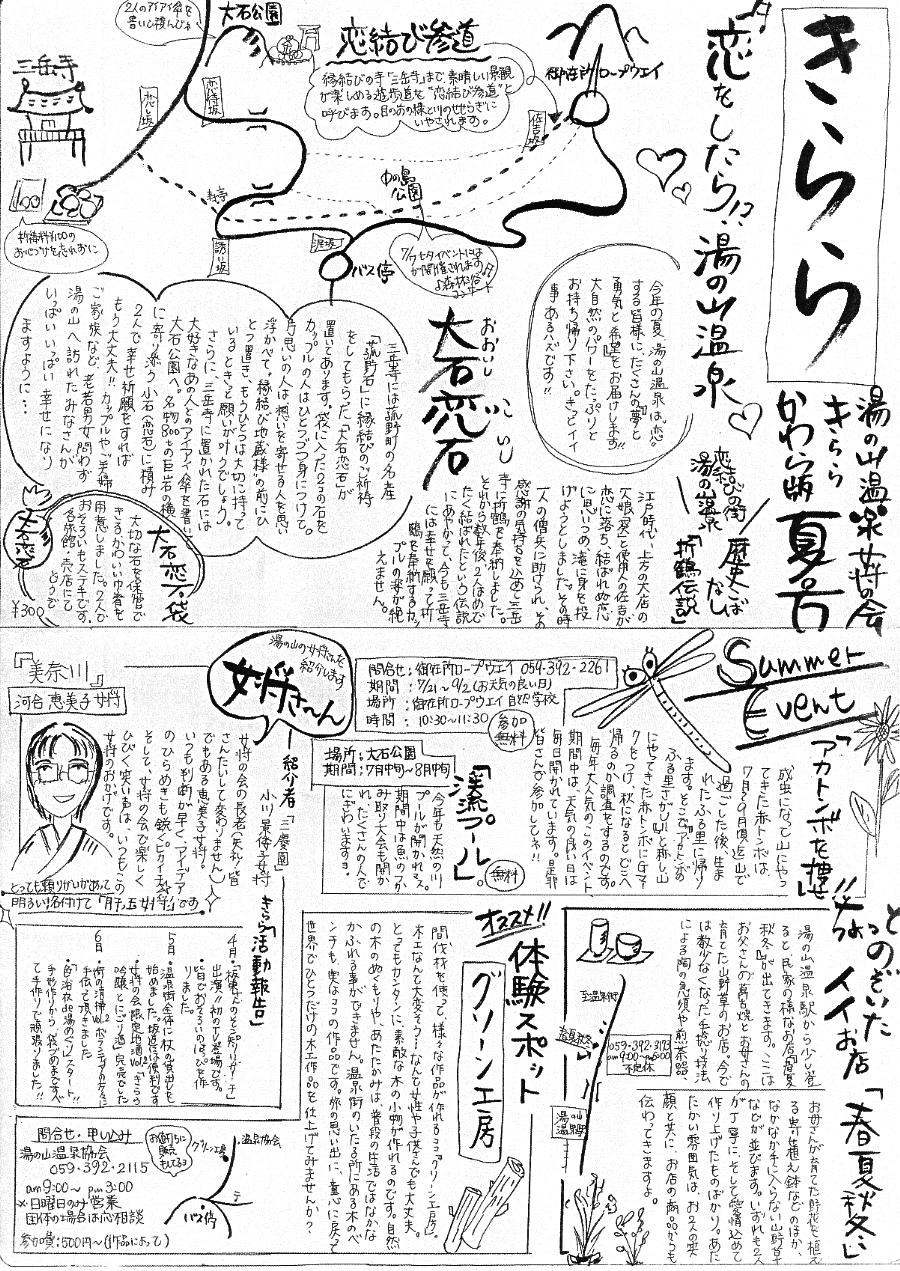 きらら
湯の山温泉女将の会
きらら
かわら版 夏号
恋をしたら!?
湯の山温泉
今年の夏、湯の山温泉は、恋
する皆様に、たくさんの夢と
勇気と希望をお届けします!!
大自然のパワーをたっぷりと
お持ち帰り下さい。きっとイイ
事あるハズです!!
御在所ロープウェイ
恋結び参道
縁結びの寺「三岳寺」まで、素晴しい景観
が楽しめる遊歩道を“恋結び参道”と
呼びます。目の前の緑と川のせせらぎに
いやされます。
大石公園
2人のアイアイ傘を
書いて積んじゃお
三岳寺
恋坂
恋待坂
佐吉坂
誘い坂
涙坂
中の島
公園
バス停
祈祷料¥100の
おさいせんを忘れずに
7/7七夕イベントには
森林浴
コンサート
恋結びの街
湯の山温泉
歴史こばなし
「折鶴伝説」
江戸時代、上方の大店の
一人娘「深雪」と使用人の佐吉が
恋に落ち、結ばれぬ恋
に思いつめ、滝に身を投
げようとしました。その時
一人の僧兵に助けられ、その
感謝の気持を込めて三岳
寺に折鶴を奉納しました。
それから数年後、2人はめで
たく結ばれたという伝説
にあやかって、今も三岳寺
には幸せを願って折
鶴を奉納するカッ
プルの姿が絶
えません。
おおいし こいし
大石恋石
三岳寺には菰野町の名産
“菰野石”に縁結びのご祈祷
をしてもらった「大石恋石」が
置いてあります。袋に入った2つの石を
カップルの人はひとつづつ身につけて、
片思いの人は想いを寄せる人を思い
浮かべて、縁結び地蔵様の前にひ
とつ置き、もうひとつは大切に持って
いるときっと願いが叶うでしょう。
さらに、三岳寺に置かれた石には
大好きなあの人とのアイアイ傘を書いて
大石公園へ。名物800tの巨岩の横
に寄り添う小石(恋石)に積み
2人で幸せ祈願をすれば
もう大丈夫!!カップルやご夫婦
ご家族など、老若男女問わず
湯の山へ訪れたみなさんが
いっぱいいっぱい幸せになり
ますように…
大石恋石袋
大切な石を保管で
きるかわいい巾着を
用意しました。2人で
おそろいもステキです。
各旅館・売店にて
どうぞ
大石恋石
¥300
Summer
Event
「アカトンボを捜せ!!」
成虫になって山にやっ
てきた赤トンボは、
7月〜9月頃迄山で
過ごした後、生ま
れたふる里に帰り
ます。そこで“アカトンボの
ふる里さがし”と称し山
にやってきた赤トンボにマー
クをつけ、秋になるとどこへ
帰るのか調査をするのです。
毎年大人気のこのイベント
期間中は、天気の良い日は
毎日開催されています。是非
皆さんで参加してネ!!
問合せ:御在所ロープウェイ 059-392-2261
期間 :7/21〜9/2(お天気の良い日)
場所 :御在所ロープウェイ 自然学校
時間 :10:30〜11:30
参加
無料
「渓流プール」。
場所:大石公園
期間:7月中旬〜8月中旬
無料
今年も天然の川
プールが開かれます。
期間中は魚のつか
み取り大会も開か
れ、たくさんの人で
にぎわいます。
湯の山の女将さんを
紹介します
女将さ〜ん
紹介者 「三慶園」
小川景侍子女将
女将の会の長老(失礼)皆
さんたいして変りませんし
でもある恵美子女将。
いつも判断が早く、アイデア
のひらめきも鋭くピカイチ。
そして、女将の会で楽しく
ひびく笑い声は、いつもこの
女将のおかげです。
『美奈川』
河合 恵美子女将
とっても頼りがいがあって
明るい名付けて「肝っ玉女将」です
きらら「活動報告」
4月・
出演!!初のテレビ登場です。
皆でおそろいのはっぴを作
りました。
5月・温泉街全体に杖の貸出しを
始めました。坂道には便利です
・女将の会限定地酒Vol.2「きらら
吟醸とにごり酒」完売でした
6月・街の清掃Vol.2 ボランティアの方に
手伝って頂きました
・宿浴衣de湯めぐりスタート!!
手形作りから袋づめまでスベ
て手作りで頑張りました!!
ちょっとのぞいた
イイお店
「春夏秋冬」
湯の山温泉駅から少し登
ると民家の様なお店『春夏
秋冬』が出てきます。ここは
お父さんの萬古焼とお母さんの
育てた山野草のお店。今で
は数少なくなった手捻り技法
による陶の急須や煎茶器、
お母さんが育てた野花を植え
る寄せ植え鉢などのほか、
なかなか手に入らない山野草
などが並びます。いずれも2人
が丁寧に、そして愛情込めて
作り上げたものばかり。あた
たかい雰囲気は、お2人の笑
顔と共に、お店の商品からも
伝わってきますよ。
至温泉街
春夏秋冬
湯の山
温泉駅
059-392-3193
am9:00〜pm5:00
不定休
オススメ!!
体験スポット
グリーン工房
間伐材を使って、様々な作品が作れるココ「グリーン工房」。
木工なんて大変そう…なんて女性や子供さんでも大丈夫。
とってもカンタンに、素敵な木の小物が作れるのです。自然
の木のぬくもりや、あたたかみは、普段の生活ではなかな
かふれる事ができません。温泉街のいたる所にある木のベ
ンチも、実はココの作品です。旅の思い出に、童心に戻って
世界でひとつだけの木工作品を仕上げてみませんか?
問合せ・申し込み
湯の山温泉協会
059-392-2115
am9:00〜pm3:00
※日曜日のみ営業
団体の場合は応相談
参加費:500円〜(作品によって)
グリーン工房
温泉協会
バス停